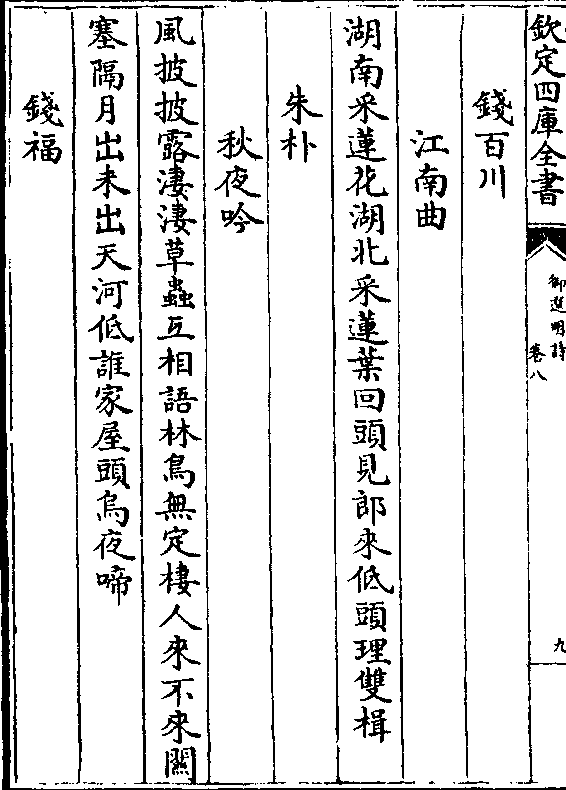 欽定四庫全書
御選明詩
卷八
九
錢百川
江南曲
湖南采蓮花湖北采蓮葉回頭見郎來低頭理雙楫
朱朴
秋夜吟
風披披露淒淒草蟲互相語林鳥無定棲人來不來關
塞隔月出未出天河低誰家屋頭烏夜啼
錢福